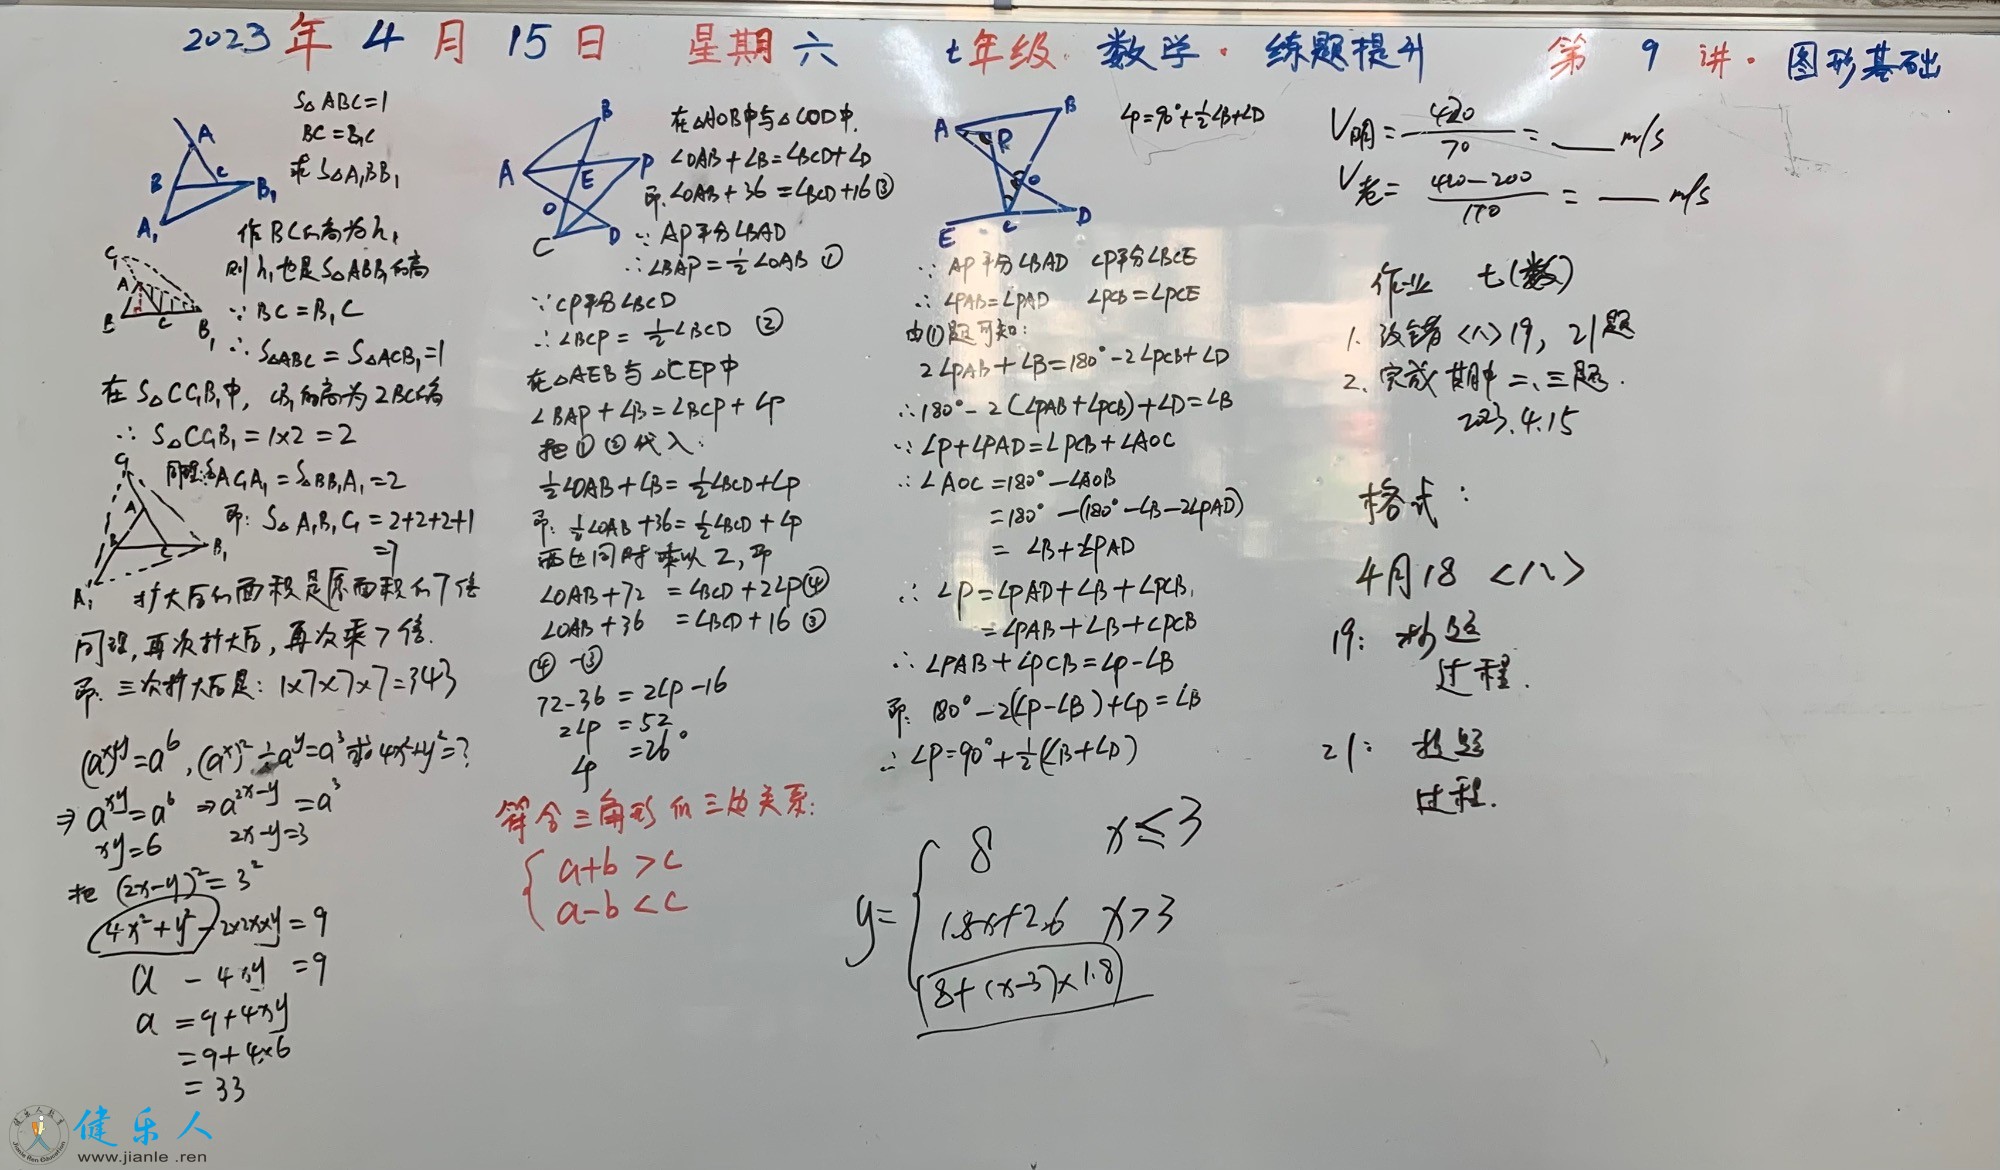 2023年4月15日 星期六 七年级·数学·练题提升 第9讲·图形基础
S△ABC=1
BC=B₁C
求S△A₁BB₁
A
B
C
B₁
A₁
作BC的高为h₁
则h₁也是S△ABB₁的高
∵BC=B₁C
∴S△ABC=S△ACB₁=1
C₁
A
B
C
B₁
在S△CC₁B₁中,CB₁的高为2BC的高
∴S△CC₁B₁=1×2=2
同理:S△AC₁A₁=S△BB₁A₁=2
即:S△A₁B₁C₁=2+2+2+1
=7
C₁
A
B
C
B₁
A₁
扩大后的面积是原面积的7倍
同理,再次扩大后,再次乘7倍.
即:三次扩大后是:1×7×7×7=343
(aˣ)ʸ=a⁶,(aˣ)²÷aʸ=a³求4x²+y²=?
⇒aˣʸ=a⁶ ⇒a²ˣ⁻ʸ=a³
xy=6 2x-y=3
把(2x-y)²=3²
4x²+y²-2×2x×y=9
a-4xy=9
a=9+4xy
=9+4×6
=33
B
A
E
P
O
C
D
在△AOB中与△COD中.
∠OAB+∠B=∠BCD+∠D
即.∠OAB+36=∠BCD+16③
∵AP平分∠BAD
∴∠BAP=½∠OAB①
∵CP平分∠BCD
∴∠BCP=½∠BCD②
在△AEB与△CEP中
∠BAP+∠B=∠BCP+∠P
把①②代入:
½∠OAB+∠B=½∠BCD+∠P
即:½∠OAB+36=½∠BCD+∠P
两边同时乘以2,即
∠OAB+72=∠BCD+2∠P④
∠OAB+36=∠BCD+16③
④-③
72-36=2∠P-16
2∠P=52
∠P=26°
符合三角形的三边关系:
a+b>c
a-b<c
A
B
P
O
E
C
D
∠P=90°+½∠B+∠D
∵AP平分∠BAD CP平分∠BCE
∴∠PAB=∠PAD ∠PCB=∠PCE
由①题可知:
2∠PAB+∠B=180°-2∠PCB+∠D
∴180°-2(∠PAB+∠PCB)+∠D=∠B
∵∠P+∠PAD=∠PCB+∠AOC
∴∠AOC=180°-∠AOB
=180°-(180°-∠B-2∠PAD)
=∠B+2∠PAD
∴∠P=∠PAD+∠B+∠PCB,
=∠PAB+∠B+∠PCB
∴∠PAB+∠PCB=∠P-∠B
即:180°-2(∠P-∠B)+∠D=∠B
∴∠P=90°+½(∠B+∠D)
y=
8 x≤3
1.8x+2.6 x>3
8+(x-3)×1.8
V明=420/70=___m/s
V老=(420-200)/110=___m/s
作业 七(数)
1.改错<八>19,21题
2.完成期中二、三题.
2023.4.15
格式:
4月18<八>
19:抄题
过程.
21:抄题
过程.
健乐人
www.jianle.ren